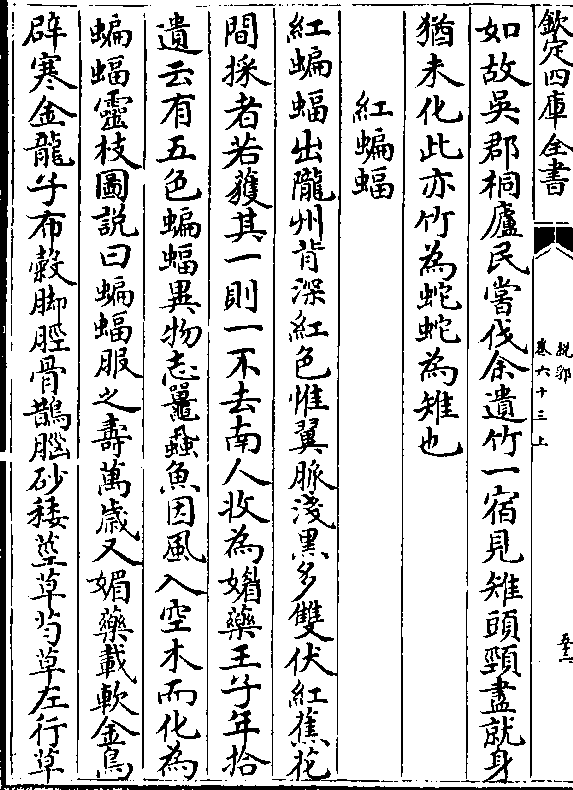 欽定四庫全書
說郛
卷六十三上
如故吳郡桐廬民嘗伐余遺竹一宿見雉頭頸盡就身
猶未化此亦竹為蛇蛇為雉也
紅蝙蝠
紅蝙蝠出隴州背深紅色惟翼脈淺黑多雙伏紅蕉花
間採者若獲其一則一不去南人收為媚藥王子年拾
遺云有五色蝙蝠異物志鼉蟲魚因風入空木而化為
蝙蝠靈枝圖説曰蝙蝠服之壽萬歲又媚藥載軟金鳥
辟寒金龍子布穀脚脛骨鵲腦砂矮莖草芍草左行草